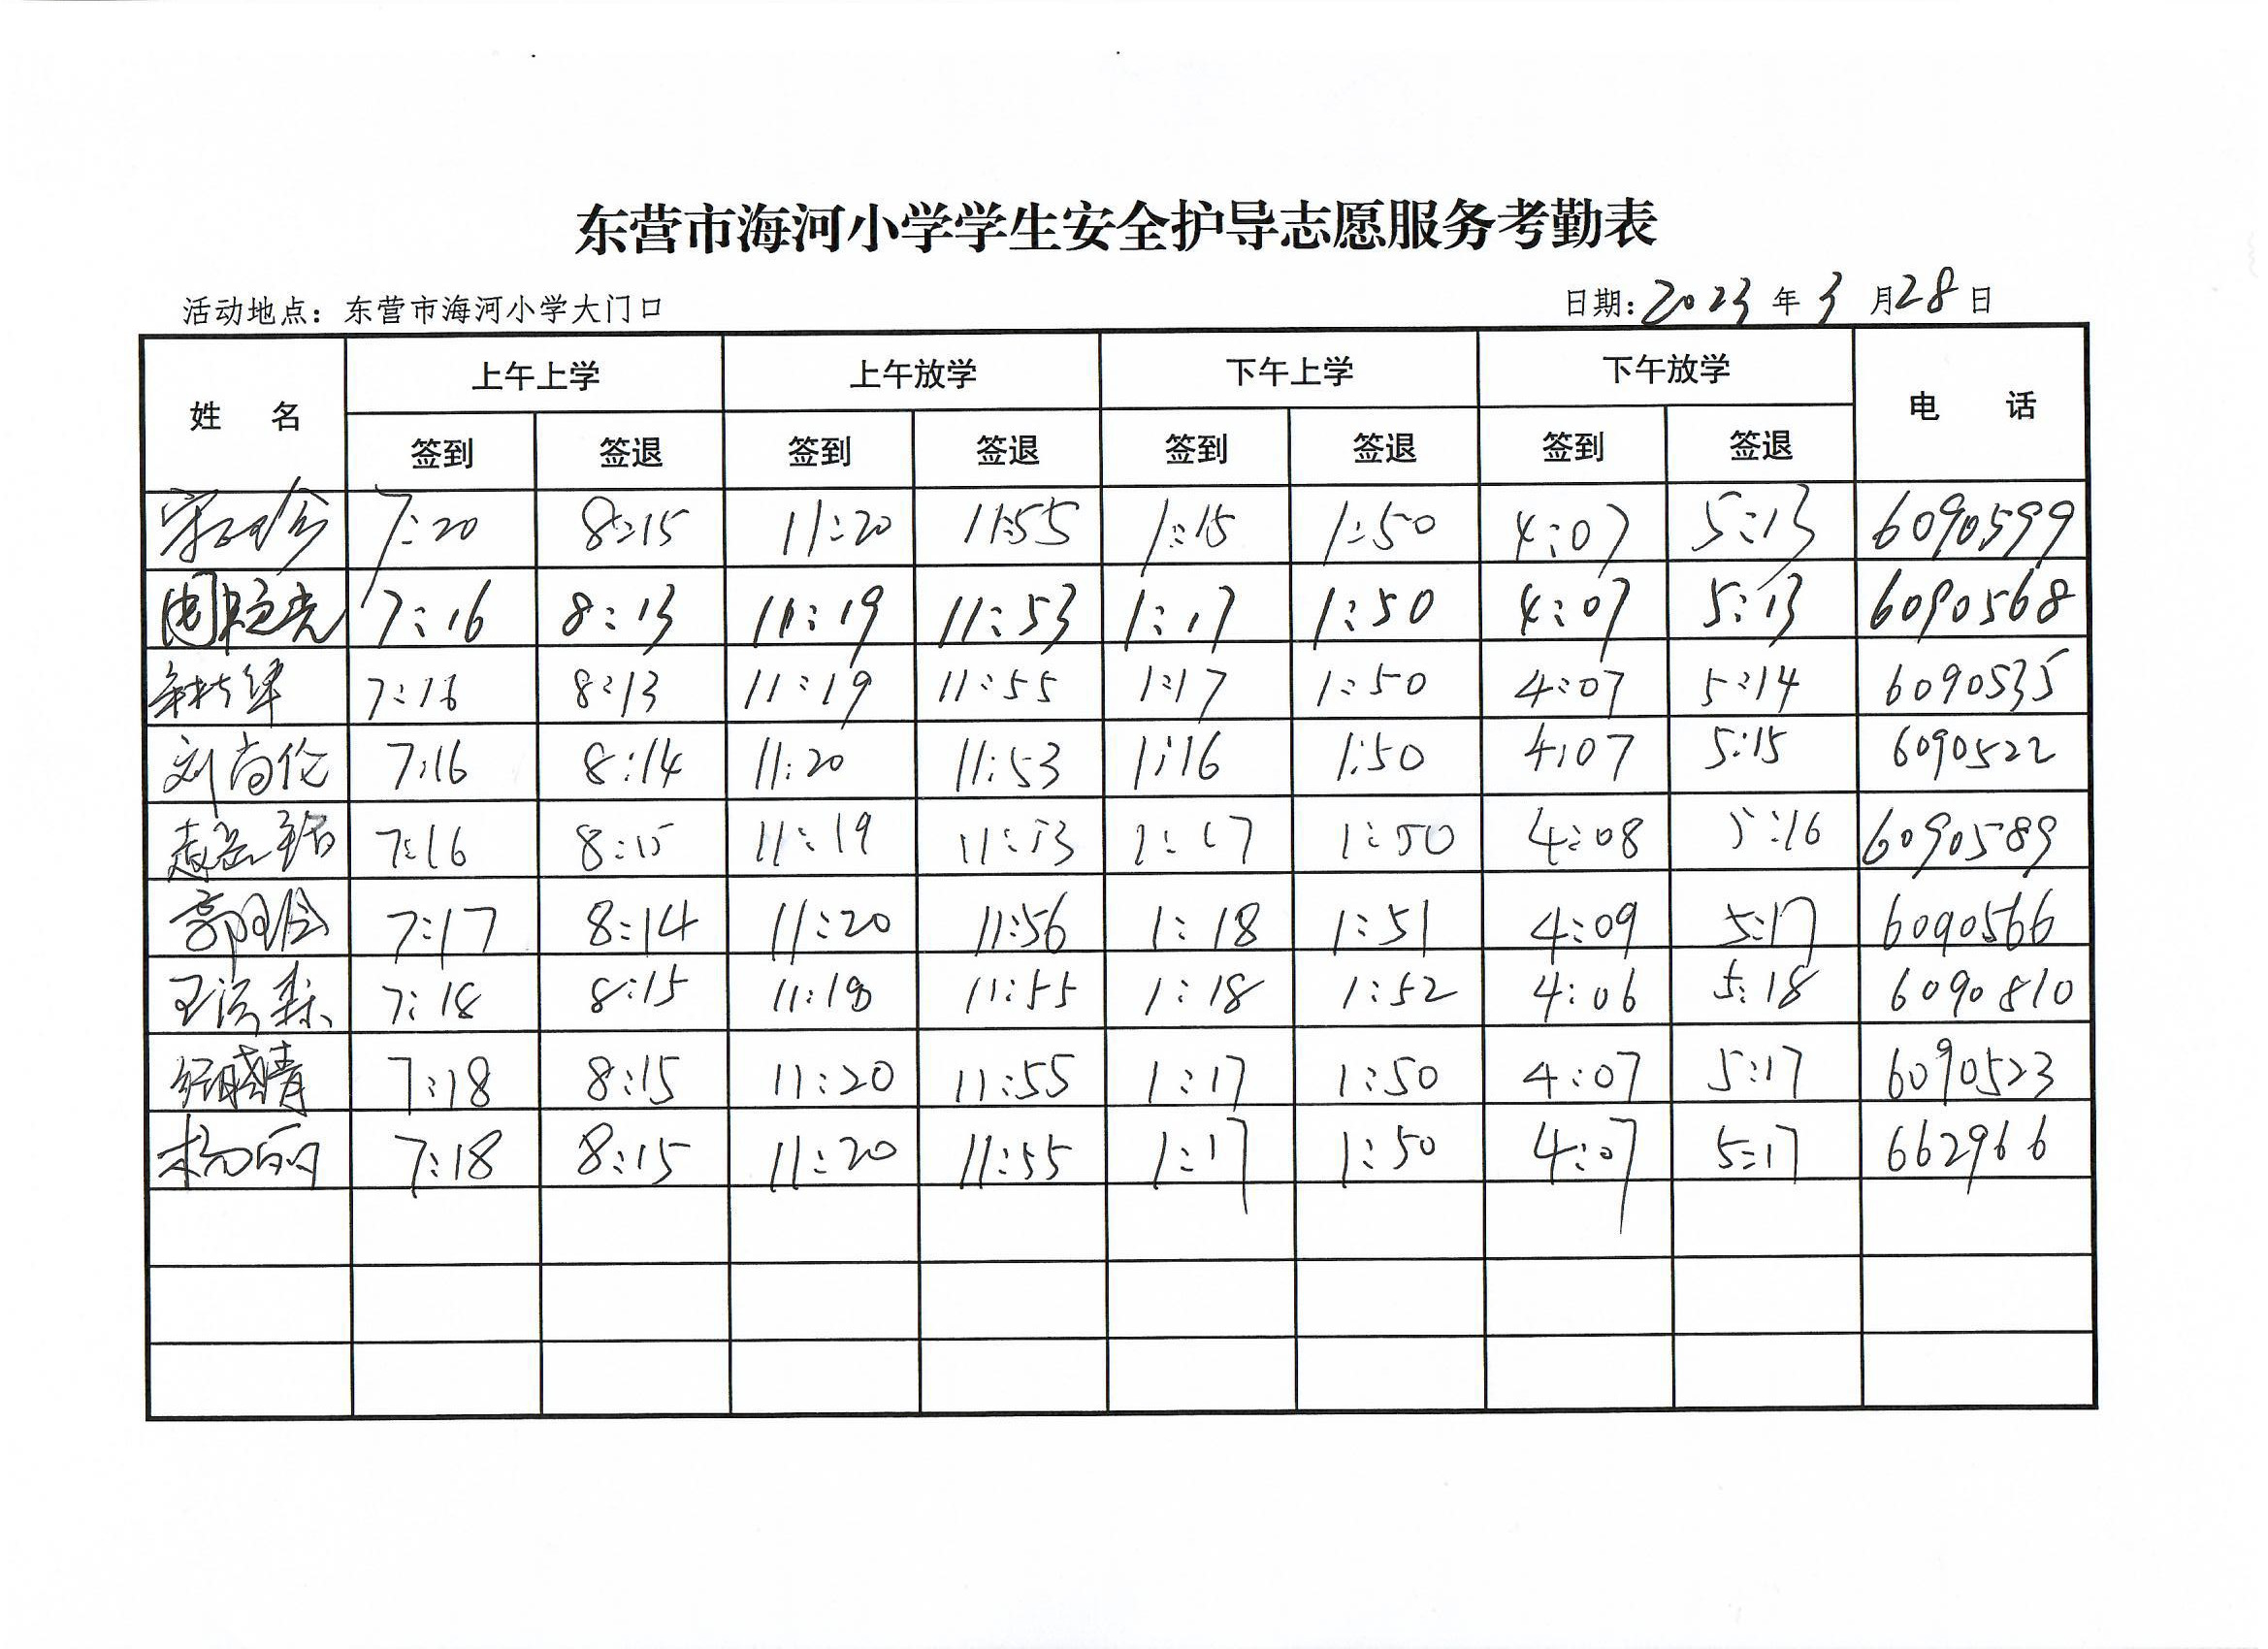 东营市海河小学学生安全护导志愿服务考勤表
活动地点：东营市海河小学大门口 日期：2023年3月28日
姓 名 上午上学 上午放学 下午上学 下午放学 电 话
签到 签退 签到 签退 签到 签退 签到 签退
7:20 8:15 11:20 11:55 1:15 1:50 4:07 5:13 6090599
7:16 8:13 11:19 11:53 1:17 1:50 4:07 5:13 6090568
7:16 8:13 11:19 11:55 1:17 1:50 4:07 5:14 6090535
刘尚伦 7:16 8:14 11:20 11:53 1:16 1:50 4:07 5:15 6090522
7:16 8:15 11:19 11:53 1:17 1:50 4:08 5:16 6090589
7:17 8:14 11:20 11:56 1:18 1:51 4:09 5:17 6090566
7:18 8:15 11:18 11:55 1:18 1:52 4:06 5:18 6090810
7:18 8:15 11:20 11:55 1:17 1:50 4:07 5:17 6090523
杨丽 7:18 8:15 11:20 11:55 1:17 1:50 4:07 5:17 662966